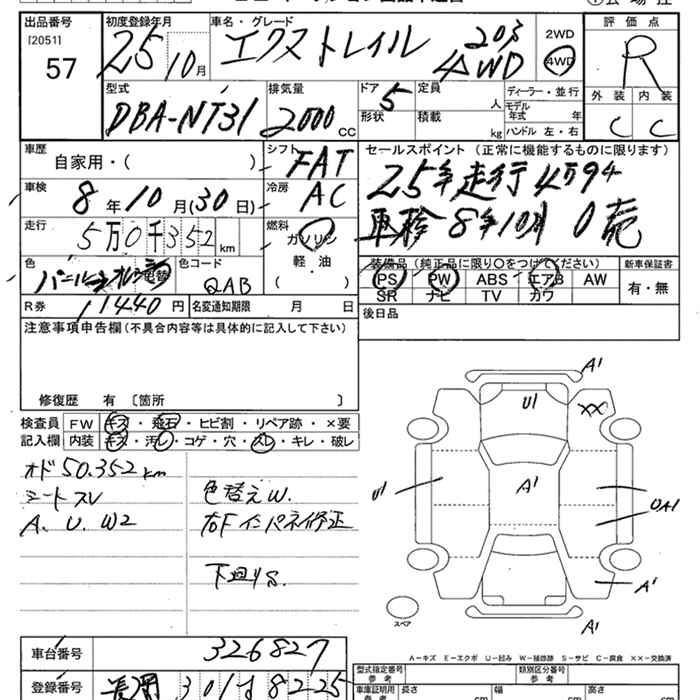 出品番号
[2051]
57
初度登録年月
25 10月
車名・グレード
エクストレイル 20S 4WD
2WD
4WD
評価点
R
型式
DBA-NT31
排気量
2000 CC
ドア
5
形状
定員
人
積載
kg
ディーラー・並行
モデル年式 年
ハンドル 左・右
外装 内装
C C
車歴
自家用・( )
シフト
FAT
セールスポイント (正常に機能するものに限ります)
25年走行4万94
車検8年10月
車検
8年10月(30日)
冷房
AC
走行
5万0千352km
燃料
ガソリン
軽・油
( )
色
色替
色コード
QAB
装備品 (純正品に限り○をつけてください)
PS PW ABS エアB AW
SR ナビ TV カワ
新車保証書
有・無
R券
11440円
名変通知期限 月 日
後日品
注意事項申告欄(不具合内容等は具体的に記入して下さい)
修復歴 有 〔箇所 〕
検査員
記入欄
FW キズ・飛石・ヒビ割・リペア跡・×要
内装 キズ・汚レ・コゲ・穴・スレ・キレ・破レ
オド50.352km
シートスレ
A、U、W2
色替えW.
右Fインパネ修正
下廻りS.
A1
U1
XX
U1
A1
UA1
A1
A1
スペア
A-キズ E-エクボ U-凹み W-補修跡 S-サビ C-腐食 ××-交換済
車台番号
326827
登録番号
長岡 301 す 8225
型式指定番号
参考
類別区分番号
参考
車庫証明用
参考
長さ cm
幅 cm
高さ cm